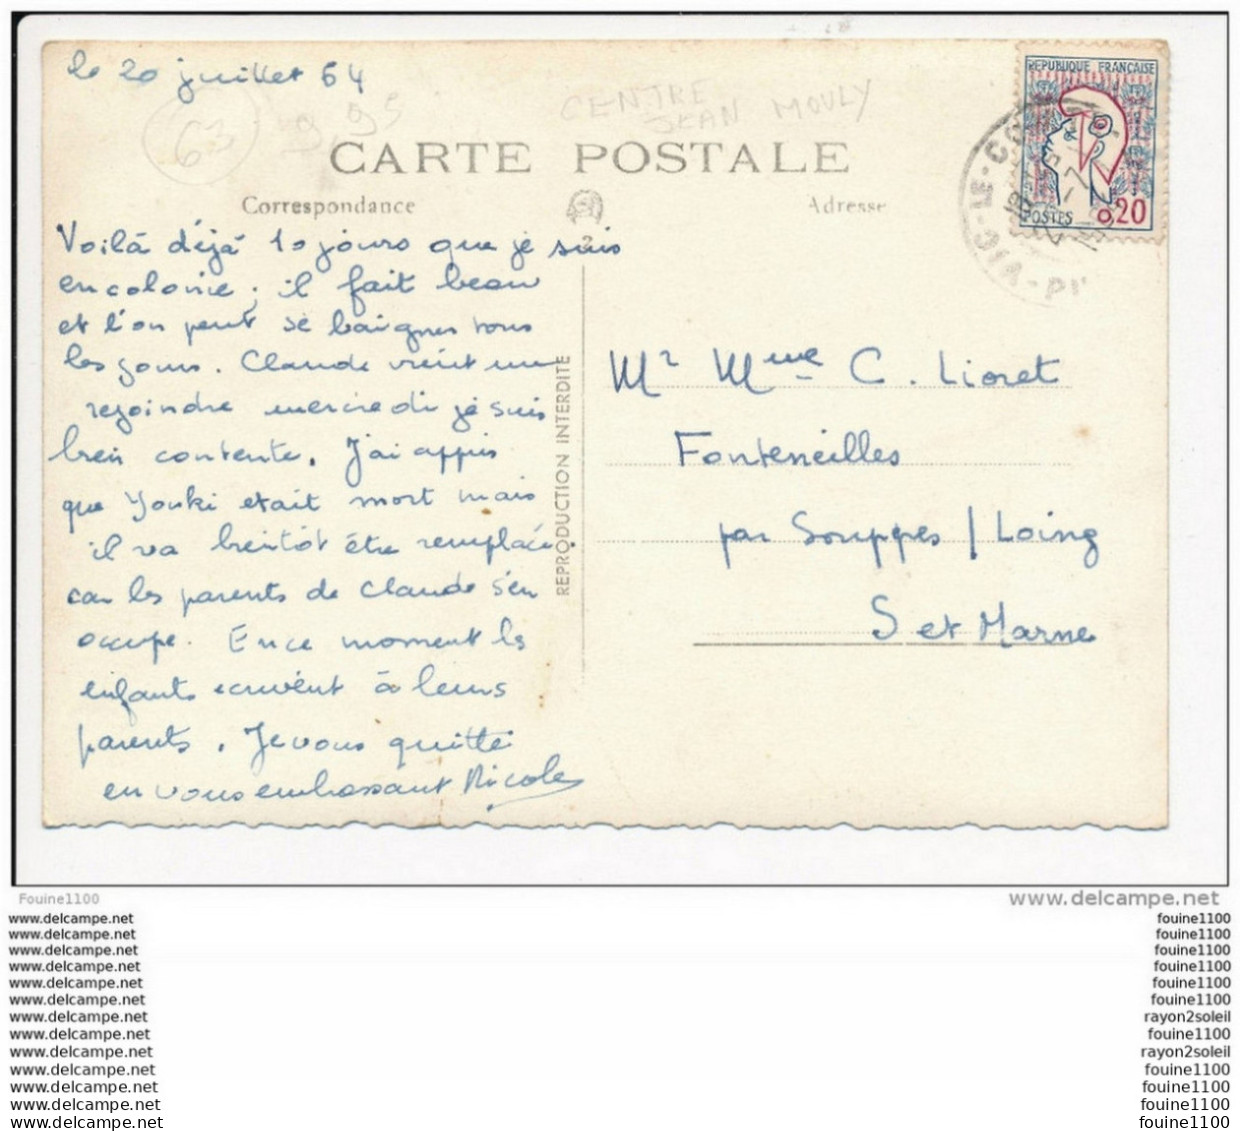 le 20 juillet 64
63
9,95
CENTRE
JEAN MOULY
CARTE POSTALE
Correspondance
Adresse
REPUBLIQUE FRANÇAISE
POSTES 0,20
VIC-LE-CO
P
2
Voilà déjà 10 jours que je suis
en colonie; il fait beau
et l'on peut se baigner tous
les jours. Claude vient me
rejoindre mercredi je suis
bien contente. J'ai appris
que Youki etait mort mais
il va bientôt être remplacé.
car les parents de Claude s'en
occupe. En ce moment les
enfants ecrivent à leurs
parents. Je vous quitte
en vous embrassant Nicole
REPRODUCTION INTERDITE
Mr Mme C. Lioret
Fonteneilles
par Souppes / Loing
S et Marne
Fouine1100
www.delcampe.net
www.delcampe.net
fouine1100
www.delcampe.net
fouine1100
www.delcampe.net
fouine1100
www.delcampe.net
fouine1100
www.delcampe.net
fouine1100
www.delcampe.net
fouine1100
www.delcampe.net
rayon2soleil
www.delcampe.net
fouine1100
www.delcampe.net
rayon2soleil
www.delcampe.net
fouine1100
www.delcampe.net
fouine1100
www.delcampe.net
fouine1100
www.delcampe.net
fouine1100